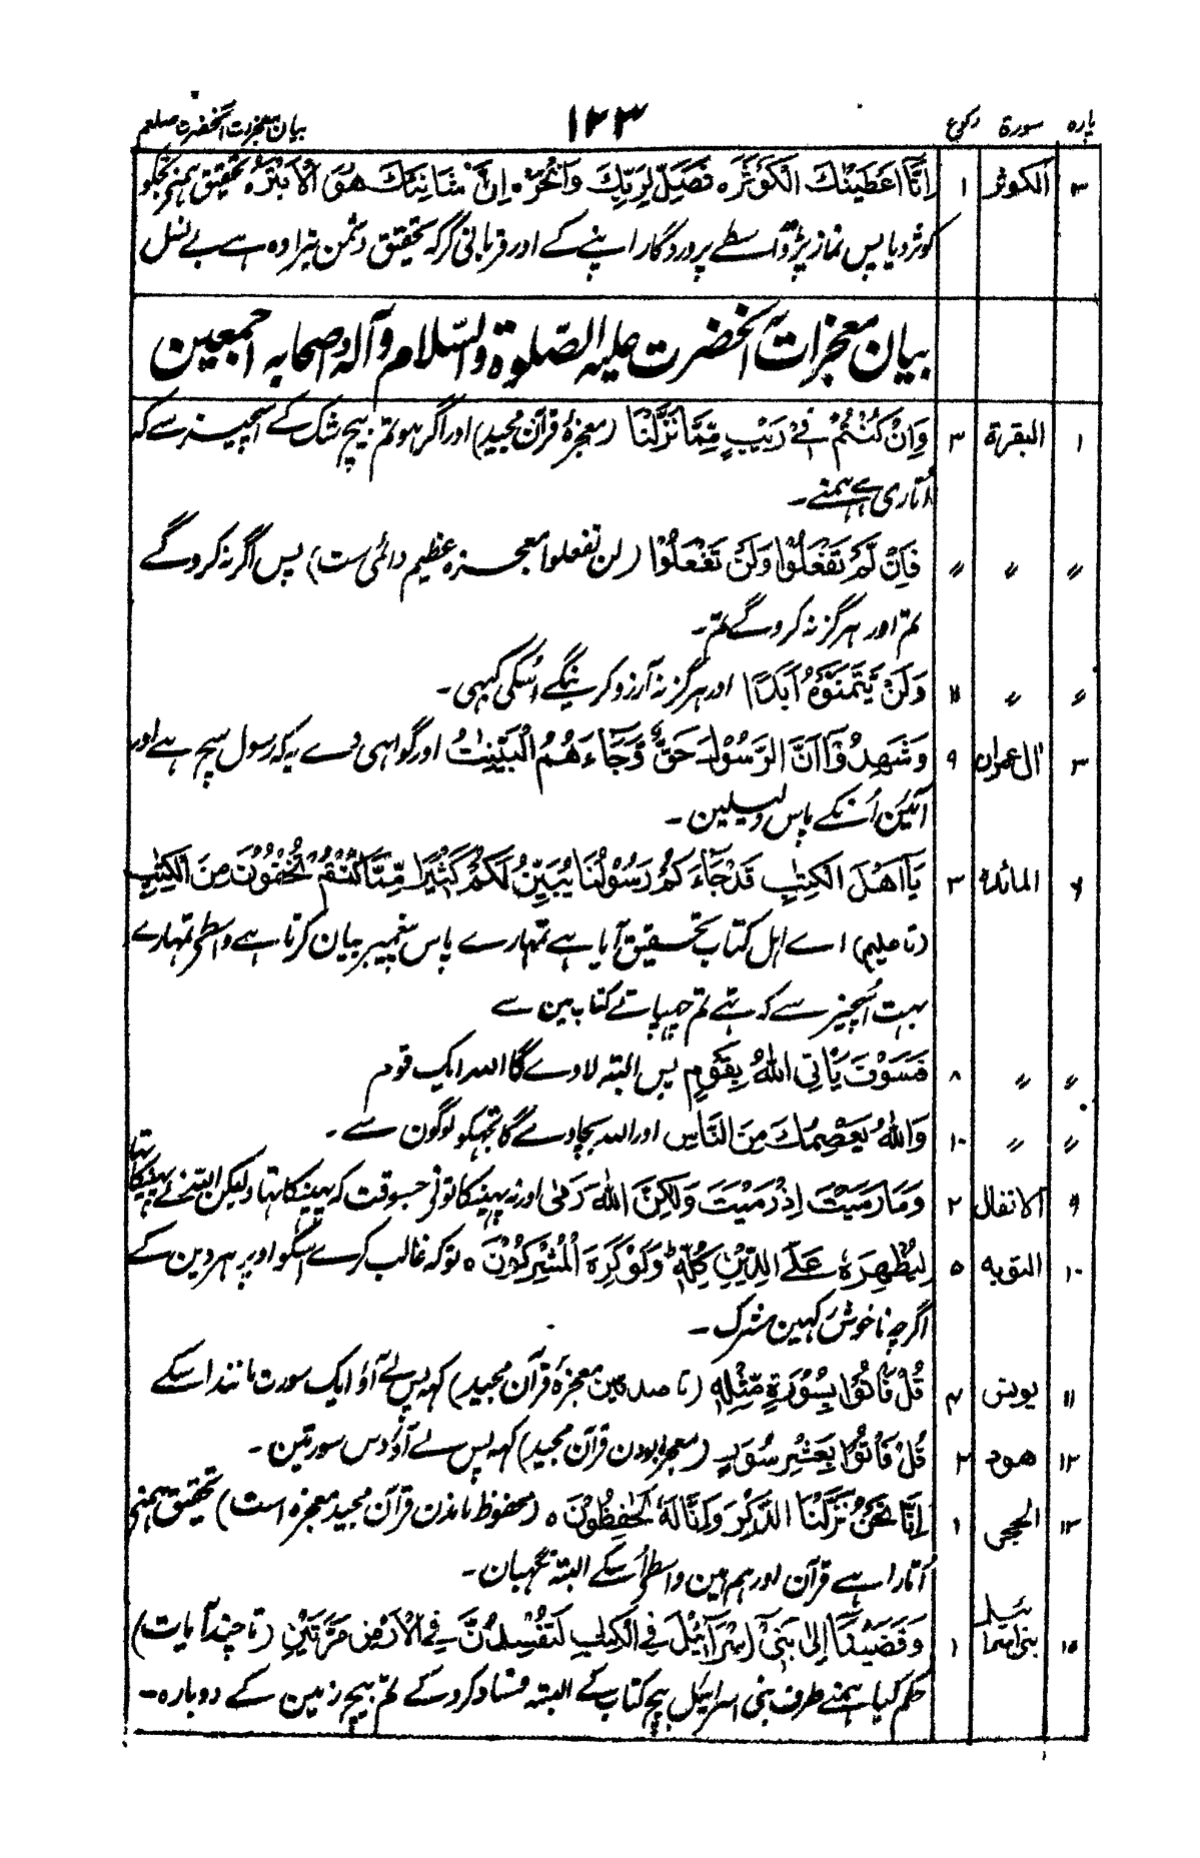 پارہ سورة رکوع ۱۲۳ بیان معجزات آنحضرت صلعم
۳ الکوثر ۱ اِنَّا اَعْطَیْنٰكَ الْكَوْثَرَ ہ فَصَلِّ لِرَبِّكَ وَانْحَرْ ہ اِنَّ شَانِئَكَ هُوَ الْاَبْتَرُ ہ تحقیق ہمنے تجکو
کوثر دیا پس نماز پڑہ واسطے پروردگار اپنے کے اور قربانی کر کہ تحقیق دشمن تیرا وہ ہے بے نسل
بیان معجزات آنحضرت علیہ الصّلوة والسّلام وآلہ وصحابہ اجمعین
۱ البقرة ۳ وَاِنْ كُنْتُمْ فِیْ رَیْبٍ مِّمَّا نَزَّلْنَا (معجزۂ قرآن مجید) اور اگر ہو تم بیچ شک کے اسچیز سے کہ
اُتاری ہے ہمنے۔
〃 〃 〃 فَاِنْ لَّمْ تَفْعَلُوْا وَلَنْ تَفْعَلُوْا (لن تفعلوا معجزہ عظیم دائمی ست) پس اگر نہ کروگے
تم اور ہرگز نہ کروگے تم۔
〃 〃 ۱۱ وَلَنْ یَّتَمَنَّوْهُ اَبَدًا اور ہرگز نہ آرزو کرینگے اُسکی کبہی۔
۳ اٰل عمران ۹ وَشَهِدُوْا اَنَّ الرَّسُوْلَ حَقٌّ وَّجَآءَهُمُ الْبَیِّنٰتُ اور گواہی دے یہ کہ رسول سچ ہے اور
آئین اُنکے پاس دلیلین۔
۶ المائدة ۳ یَآ اَهْلَ الْكِتٰبِ قَدْ جَآءَكُمْ رَسُوْلُنَا یُبَیِّنُ لَكُمْ كَثِیْرًا مِّمَّا كُنْتُمْ تُخْفُوْنَ مِنَ الْكِتٰبِ
(تا علیم) اے اہل کتاب تحقیق آیا ہے تمہارے پاس پیغمبر بیان کرتا ہے واسطے تمہارے
بہت اُسچیز سے کہ تہے تم چہپاتے کتاب مین سے
〃 〃 ۸ فَسَوْفَ یَاْتِی اللّٰهُ بِقَوْمٍ پس البتہ لاوے گا اللہ ایک قوم
〃 〃 ۱۰ وَاللّٰهُ یَعْصِمُكَ مِنَ النَّاسِ اور اللہ بچاوے گا تجہکو لوگون سے۔
۹ الانفال ۲ وَمَا رَمَیْتَ اِذْ رَمَیْتَ وَلٰكِنَّ اللّٰهَ رَمٰی اور نہ پہینکا تونے جسوقت کہ پہینکا تہا ولیکن اللہ نے پہینکا تہا
۱۰ التوبہ ۵ لِیُظْهِرَهٗ عَلَی الدِّیْنِ كُلِّهٖ وَلَوْ كَرِهَ الْمُشْرِكُوْنَ ہ توکہ غالب کرے اسکو اوپر ہر دین کے
اگرچہ ناخوش رکہین مشرک۔
۱۱ یونس ۴ قُلْ فَاْتُوْا بِسُوْرَةٍ مِّثْلِهٖ (تا صدقین معجزۂ قرآن مجید) کہہ پس لے آؤ ایک سورت مانند اسکے
۱۲ هود ۲ قُلْ فَاْتُوْا بِعَشْرِ سُوَرٍ (معجزہ بودن قرآن مجید) کہہ پس لے آؤ دس سورتین۔
۱۳ الحجر ۱ اِنَّا نَحْنُ نَزَّلْنَا الذِّكْرَ وَاِنَّا لَهٗ لَحٰفِظُوْنَ ہ (محفوظ ماندن قرآن مجید معجزہ است) تحقیق ہمنے
اُتارا ہے قرآن اور ہم ہین واسطے اُسکے البتہ نگہبان۔
۱۵ بنی اسرائیل ۱ وَقَضَیْنَا اِلٰی بَنِیْ اِسْرَآئِیْلَ فِی الْكِتٰبِ لَتُفْسِدُنَّ فِی الْاَرْضِ مَرَّتَیْنِ (تا چند آیات)
حکم کیا ہمنے طرف بنی اسرائیل بیچ کتاب کے البتہ فساد کروگے تم بیچ زمین کے دوبارہ۔